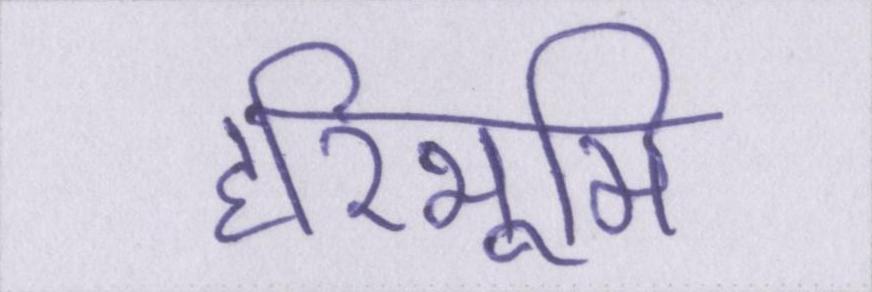 हरिभूमि